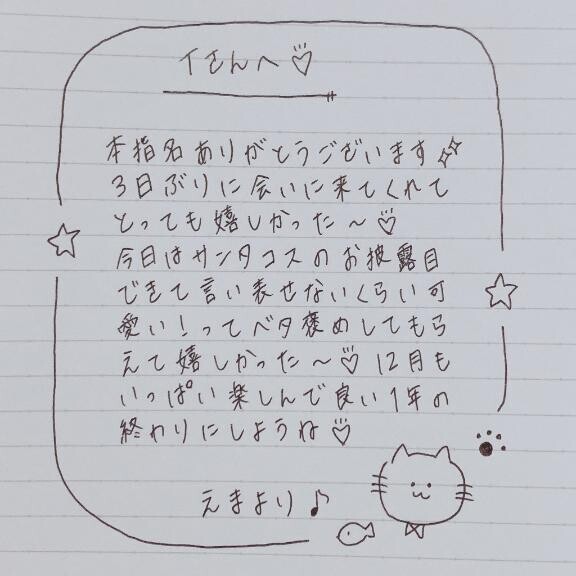 Tさんへ♡
本指名ありがとうございます✨
3日ぶりに会いに来てくれて
とっても嬉しかった〜♡
今日はサンタコスのお披露目
できて言い表せないくらい可
愛い!ってベタ褒めしてもら
えて嬉しかった〜♡12月も
いっぱい楽しんで良い1年の
終わりにしようね♡
えまより♪